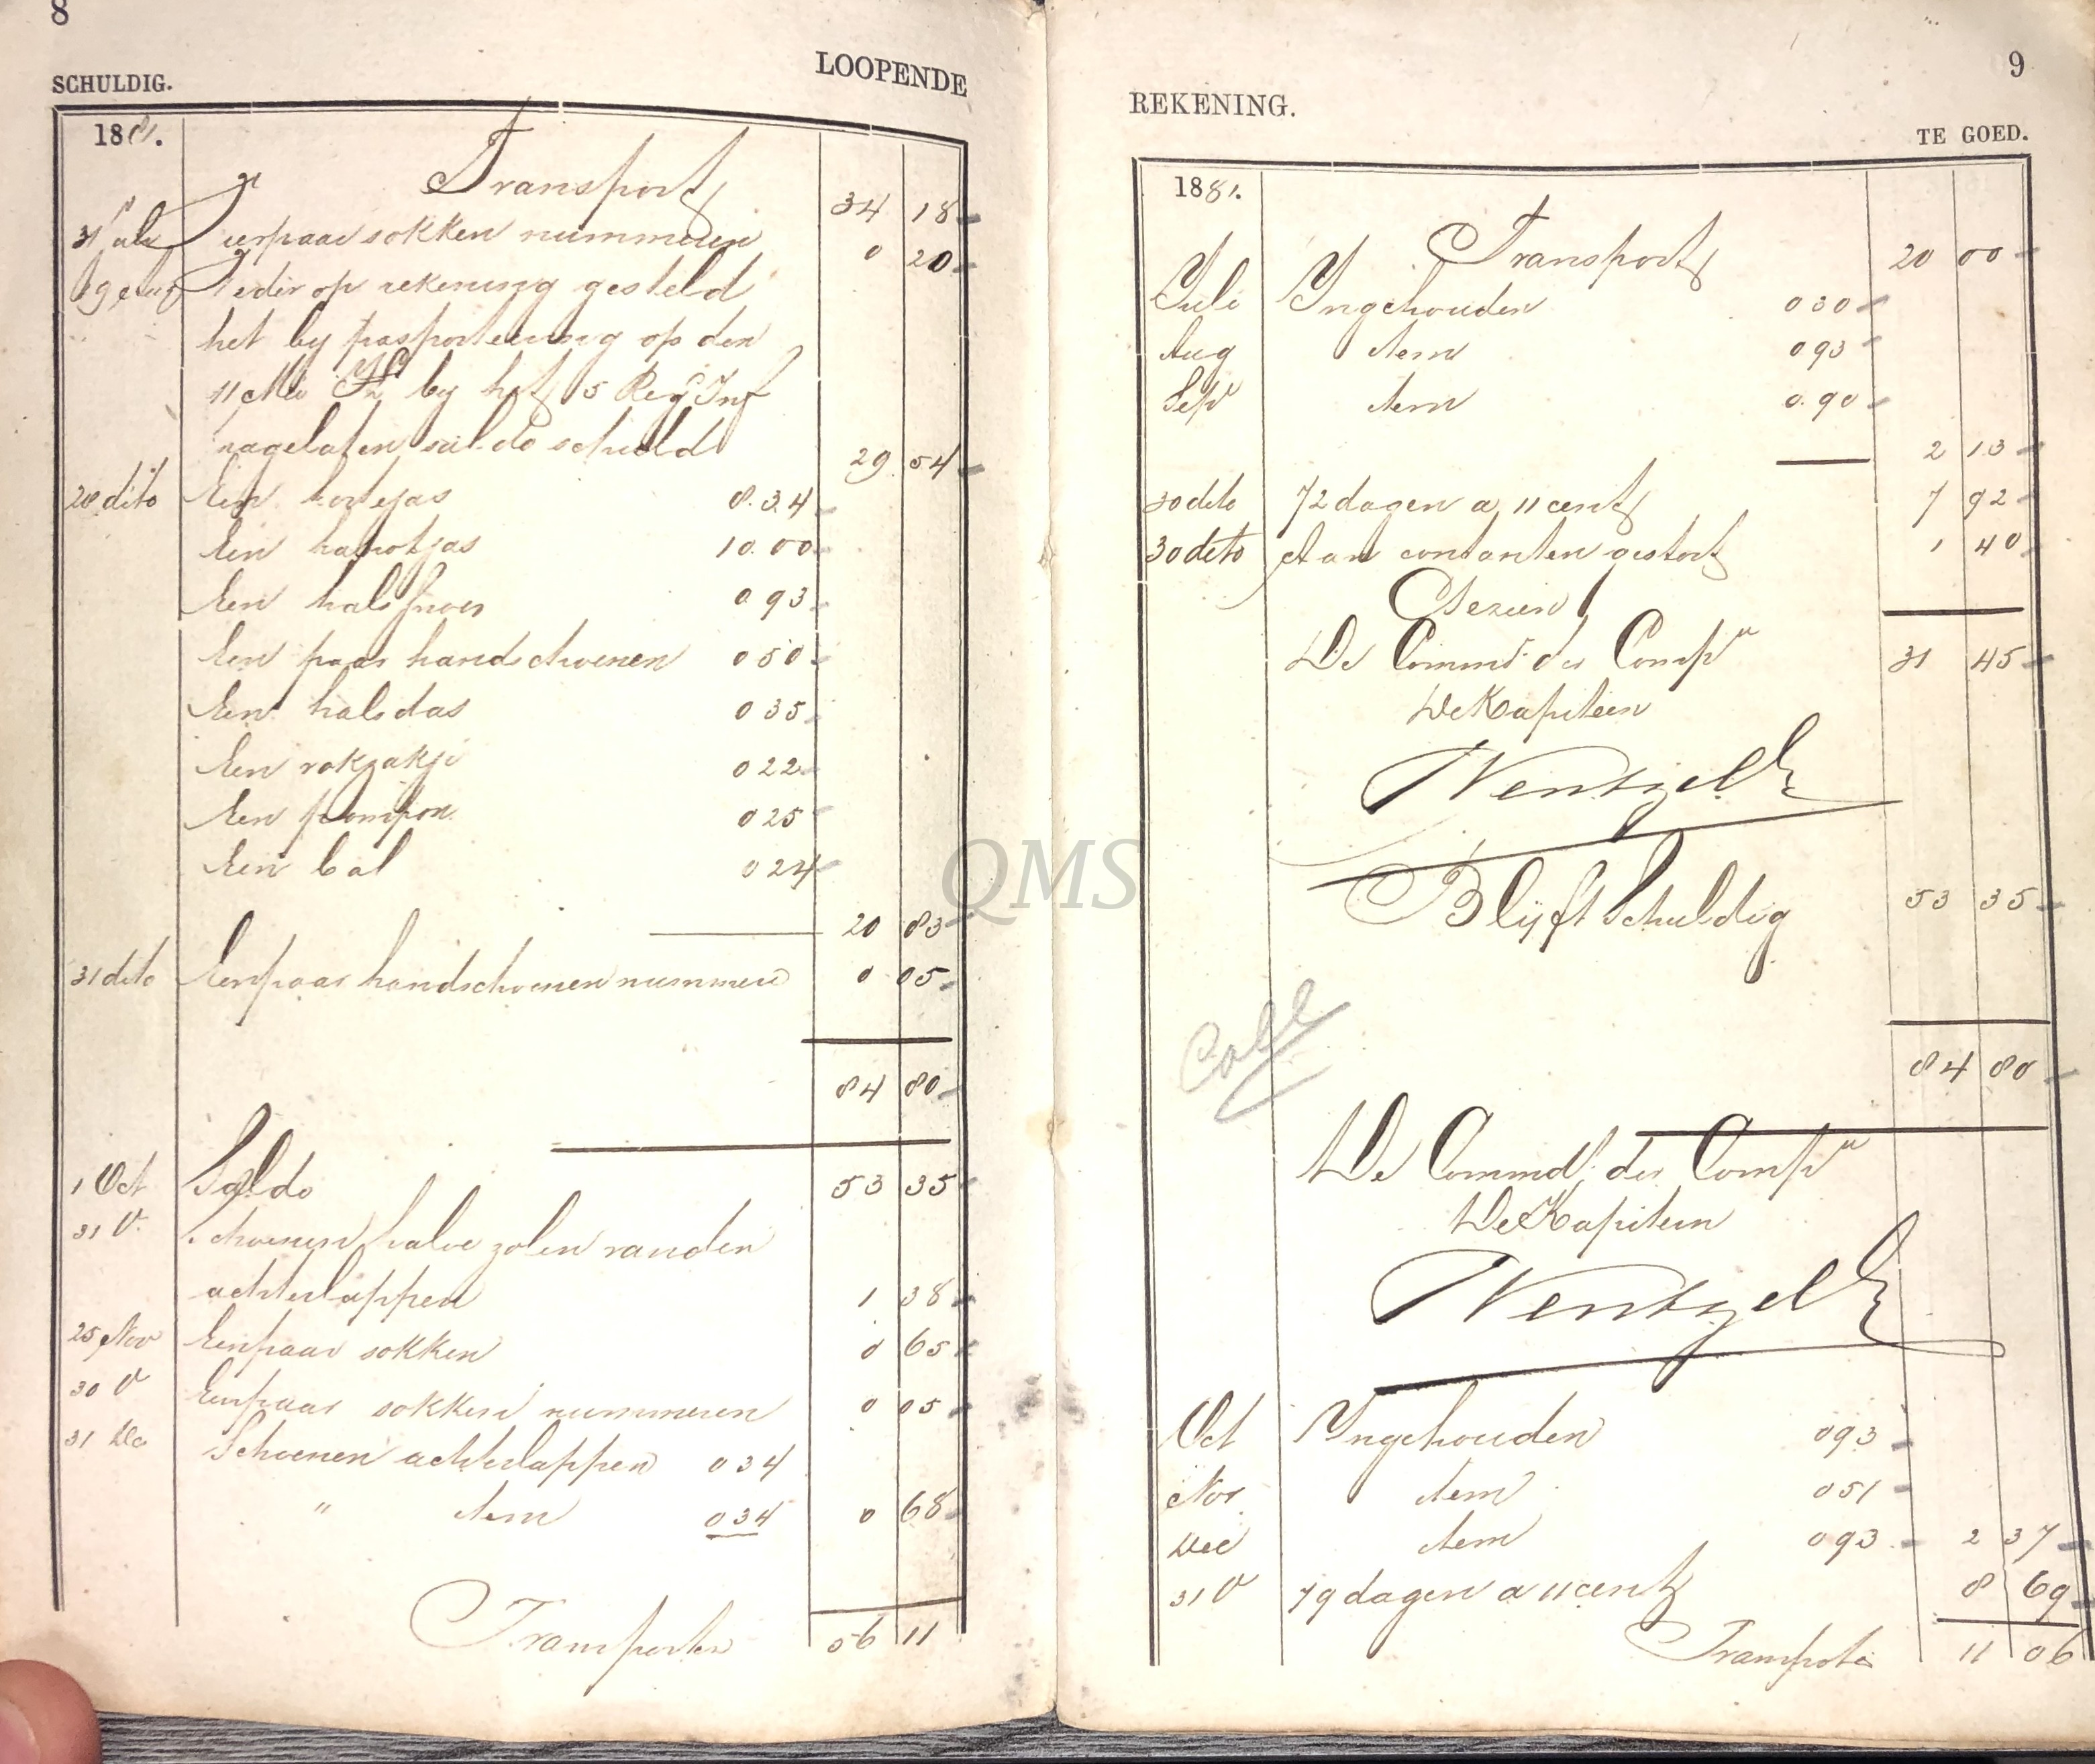 8
SCHULDIG.
LOOPENDE
1881.
Transport
34 18
31 Juli Eenpaar sokken nummeren 0 20
Weder op rekening gesteld
het by pasporteering op den
11 Mei by het 5 Reg Inf
nagelaten saldo schuld 29 54
20 dito Een kortejas 8.34
Een kapotjas 10.00
Een halssnoer 0 93
Een paar handschoenen 0 50
Een halsdas 0 35
Een rokzakje 0 22
Een pompon 0 25
Een bal 0 24
20 83
31 dito Eenpaar handschoenen nummere 0 05
84 80
1 Oct Saldo 53 35
31 Schoenen halve zolen randen
achterlappen 1 38
25 Nov Eenpaar sokken 0 65
30 Eenpaar sokken nummeren 0 05
31 Dec Schoenen achterlappen 0 34
" idem 0 34 0 68
Transporten 56 11
9
REKENING.
TE GOED.
1881.
Transport 20 00
Juli Yngehouden 0 30
Aug idem 0 93
Sept idem 0.90
2 13
30 dito 72 dagen a 11 cent 7 92
30 dito Aan contanten gestort 1 40
Gezien
De Commt der Compn 31 45
De Kapitein
Wentzel
Blyft Schuldig 53 35
84 80
De Commdt der Compn
De Kapitein
Wentzel
Oct Yngehouden 0 93
Nov idem 0 51
Dec idem 0 93 2 37
31 79 dagen a 11 cent 8 69
Transporte 11 06
QMS